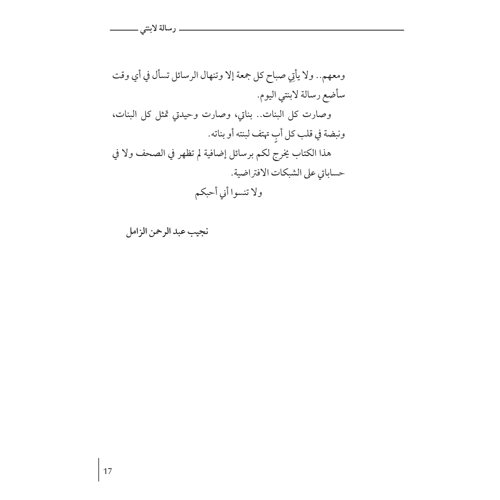 رسالة لابنتي
ومعهم.. ولا يأتي صباح كل جمعة إلا وتنهال الرسائل تسأل في أي وقت
سأضع رسالة لابنتي اليوم.
وصارت كل البنات.. بناتي، وصارت وحيدتي تمثل كل البنات،
ونبضة في قلب كل أبٍ تهتف لبنته أو بناته.
هذا الكتاب يخرج لكم برسائل إضافية لم تظهر في الصحف ولا في
حساباتي على الشبكات الافتراضية.
ولا تنسوا أني أحبكم
نجيب عبد الرحمن الزامل
17